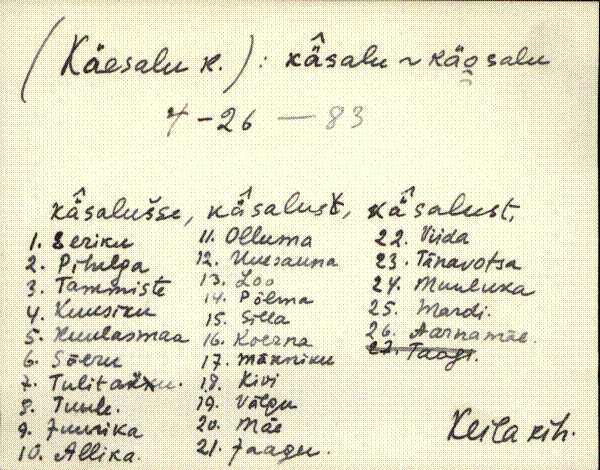 (Käesalu k.): kâsalu ~ käo̯salu
4-26 — 83
kâsalušse, kâsalust, kâsalust.
1. Seriku
2. Pihelga
3. Tammiste
4. Kuusiku
5. Kuulasmaa
6. Sõeru
7. Tulitaru.
8. Tuule.
9. Juurika
10. Allika.
11. Olluma
12. Uuesauna
13. Loo
14. Põlma
15. Silla
16. Koerna
17. Männiku
18. Kivi
19. Välgu
20. Mäe
21. Jaagu.
22. Viida
23. Tänavotsa
24. Muuluka
25. Mardi.
26. Aarnamäe.
27. Taagi.
Keila kih.